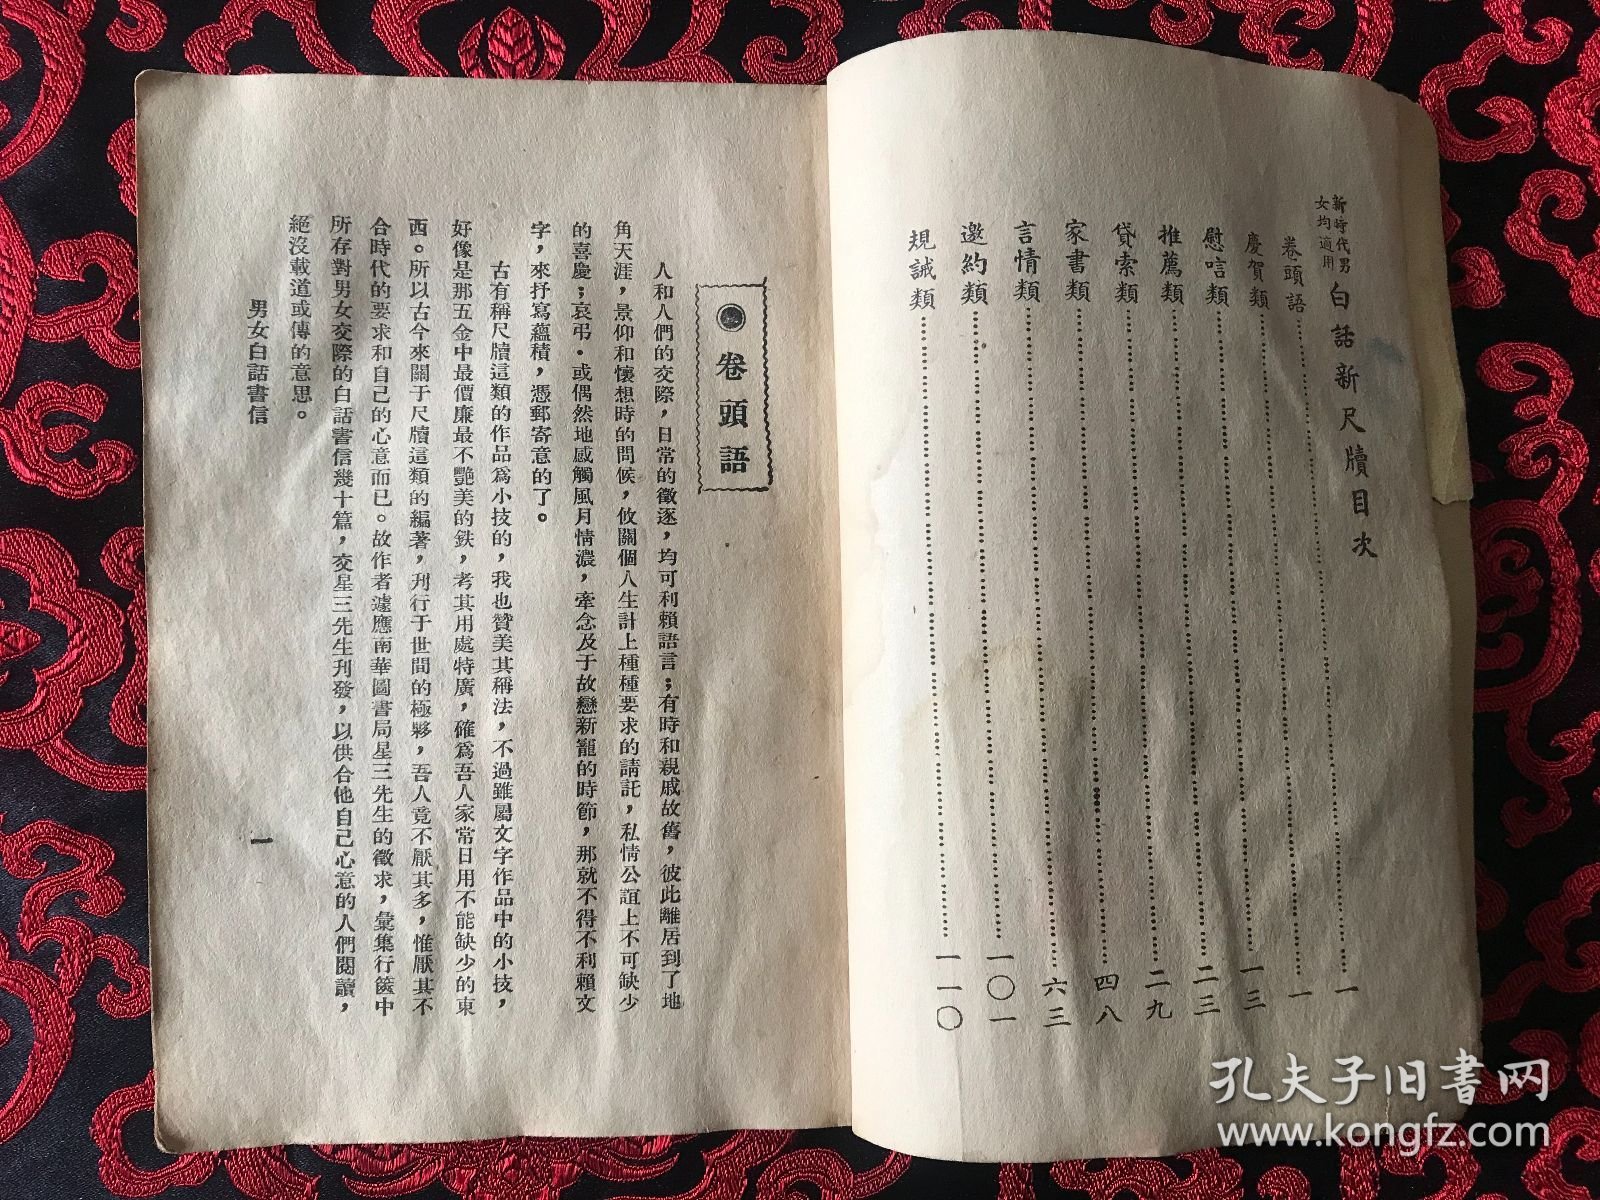 新時代男
女均適用
白話新尺牘目次
卷頭語……一
慶賀類……一
慰唁類……一三
推薦類……二三
貸索類……二九
家書類……四八
言情類……六三
邀約類……一〇一
規誡類……一一〇
卷頭語
人和人們的交際，日常的徵逐，均可利賴語言；有時和親戚故舊，彼此離居到了地
角天涯，景仰和懷想時的問候，攸關個人生計上種種要求的請託，私情公誼上不可缺少
的喜慶；哀弔．或偶然地感觸風月情濃，牽念及于故戀新寵的時節，那就不得不利賴文
字，來抒寫蘊積，憑郵寄意的了。
古有稱尺牘這類的作品爲小技的，我也贊美其稱法，不過雖屬文字作品中的小技，
好像是那五金中最價廉最不艷美的鉄，考其用處特廣，確爲吾人家常日用不能缺少的東
西。所以古今來關于尺牘這類的編著，刋行于世間的極夥，吾人竟不厭其多，惟厭其不
合時代的要求和自己的心意而已。故作者遽應南華圖書局星三先生的徵求，彙集行篋中
所存對男女交際的白話書信幾十篇，交星三先生刋發，以供合他自己心意的人們閱讀，
絕沒載道或傳的意思。
男女白話書信
一
孔夫子旧書网
www.kongfz.com